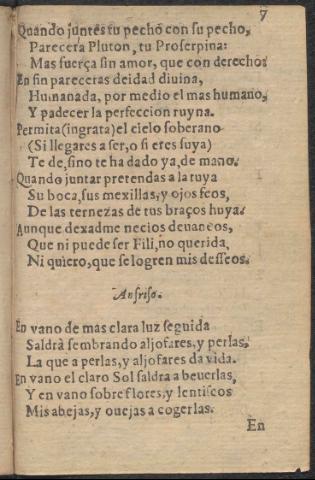 7
Quando juntes tu pecho con su pecho,
Parecera Pluton, tu Proserpina:
Mas fuerça sin amor, que con derecho:
En fin pareceras deidad diuina,
Humanada, por medio el mas humano,
Y padecer la perfeccion ruyna.
Permita (ingrata) el cielo soberano
(Si llegares a ser, o si eres suya)
Te de, sino te ha dado ya, de mano.
Quando juntar pretendas a la tuya
Su boca, sus mexillas, y ojos feos,
De las ternezas de tus braços huya.
Aunque dexadme necios deuaneos,
Que ni puede ser Fili, no querida,
Ni quiero, que se logren mis desseos.
Anfriso.
En vano de mas clara luz seguida
Saldrà sembrando aljofares, y perlas,
La que a perlas, y aljofares da vida.
En vano el claro Sol saldra a beuerlas,
Y en vano sobre flores, y lentiscos
Mis abejas, y ouejas a cogerlas.
En